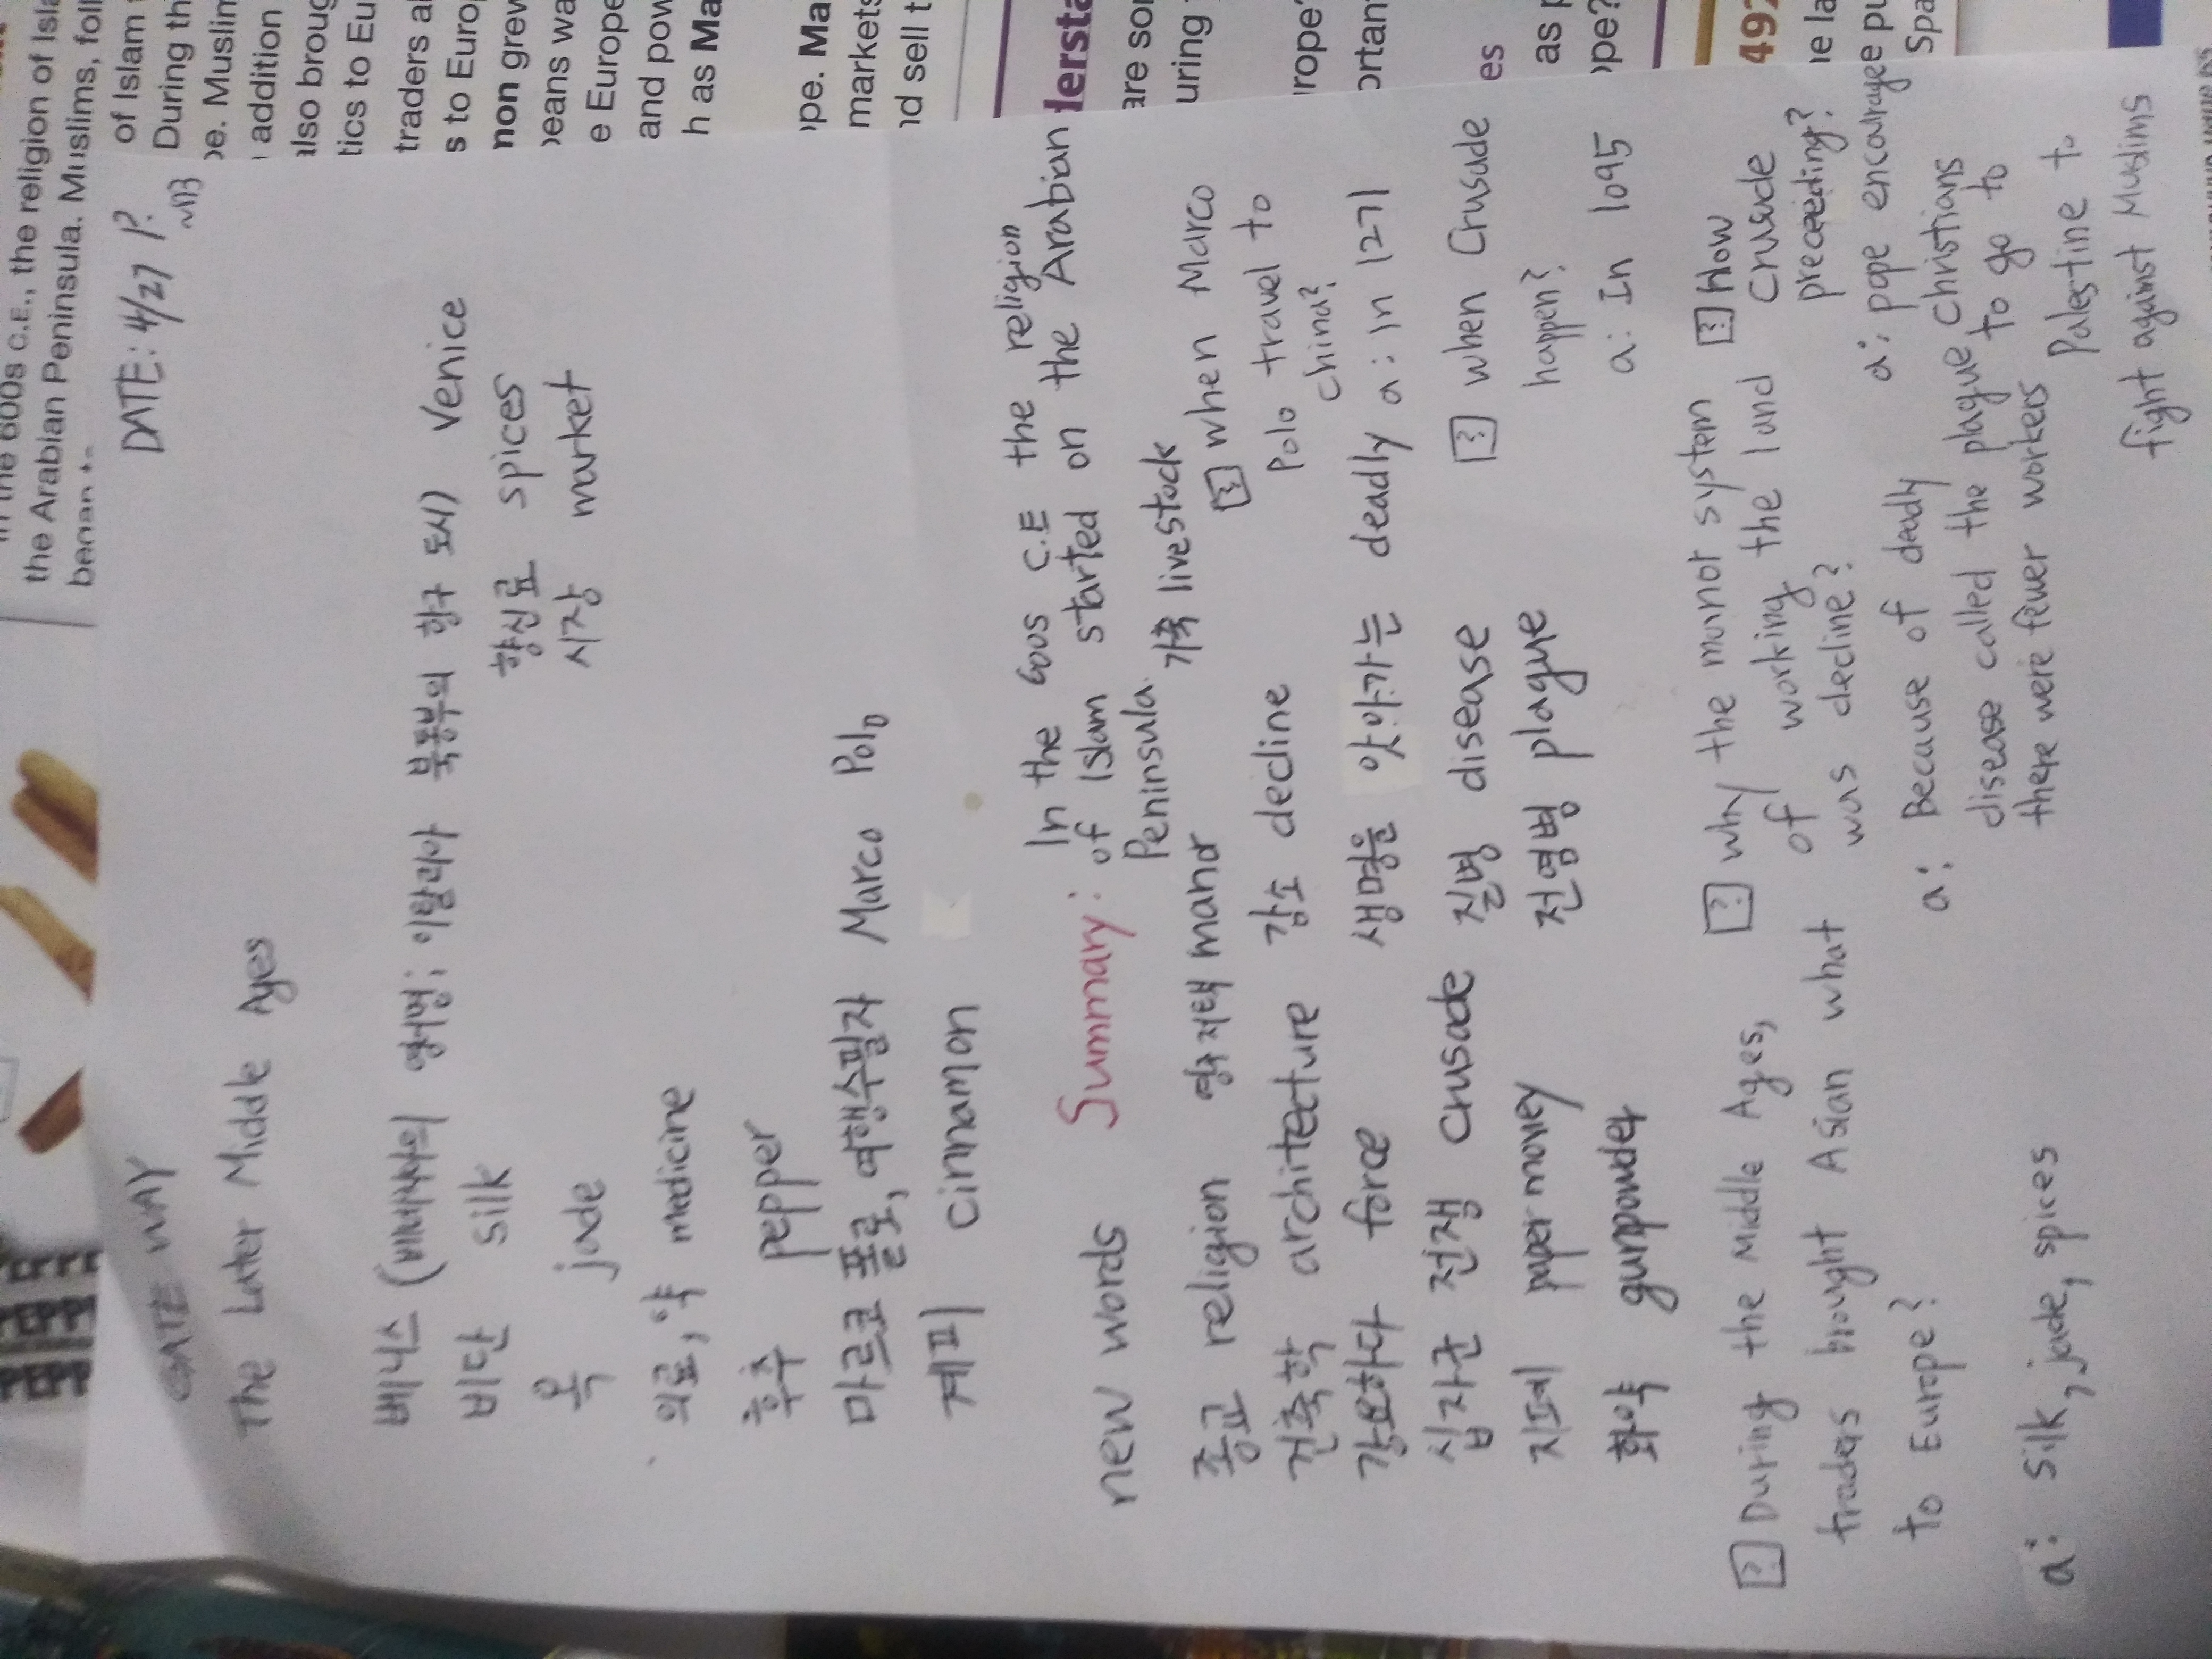 in the 600s C.E., the religion of Isla
the Arabian Peninsula. Muslims, foll
of Islam
During th
pe. Muslim
addition
also broug
tics to Eu
traders a
s to Euro
non grew
peans wa
e Europe
and pow
h as Ma
ope. Ma
markets
nd sell t
dersta
are so
uring
urope
ortan
es
as p
ope?
492
ne la
e pu
Spa
GATE WAY
DATE: 4/27 P.
The Later Middle Ages
베니스 (베네치아의 영어명: 이탈리아 북동부의 항구 도시) Venice
비단 silk
향신료 spices
옥 jade
시장 market
의료, 약 medicine
후추 pepper
마르코 폴로, 여행수필자 Marco Polo
계피 cinnamon
new words
Summary: In the 600s C.E the religion
of Islam started on the Arabian
Peninsula.
종교 religion
영주저택 manor
가축 livestock
건축학 architecture
감소 decline
강요하다 force
생명을 앗아가는 deadly
십자군 전쟁 crusade
질병 disease
지폐 paper money
전염병 plague
화약 gunpowder
[?] when Marco
Polo travel to
china?
a: In 1271
[?] when Crusade
happen?
a: In 1095
[?] During the Middle Ages,
traders brought Asian what
to Europe?
a: silk, jade, spices
[?] why the manor system
of working the land
was decline?
a: Because of deadly
disease called the plague
there were fewer workers
[?] How
Crusade
preceeding?
a: pope encourage
Christians
to go to
Palestine to
fight against Muslims